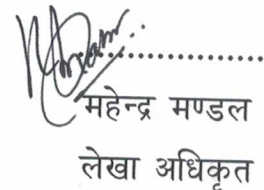 ....................
महेन्द्र मण्डल
लेखा अधिकृत